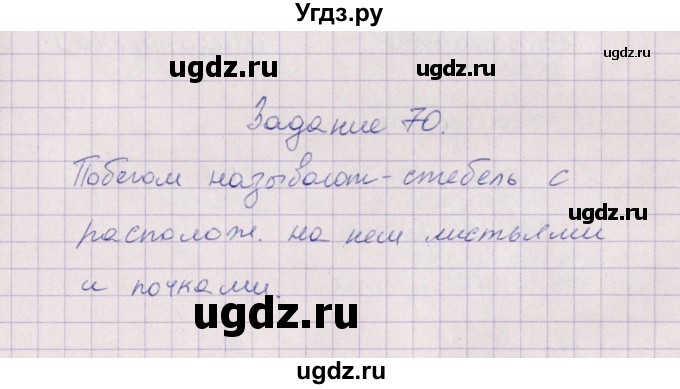 Угдз.ру
ugdz.ru
ugdz.ru ugdz.ru
Задание 70.
Побегом называют - стебель с
ugdz.ru
располож. на нем листьями
и почками.
ugdz.ru
ugdz.ru